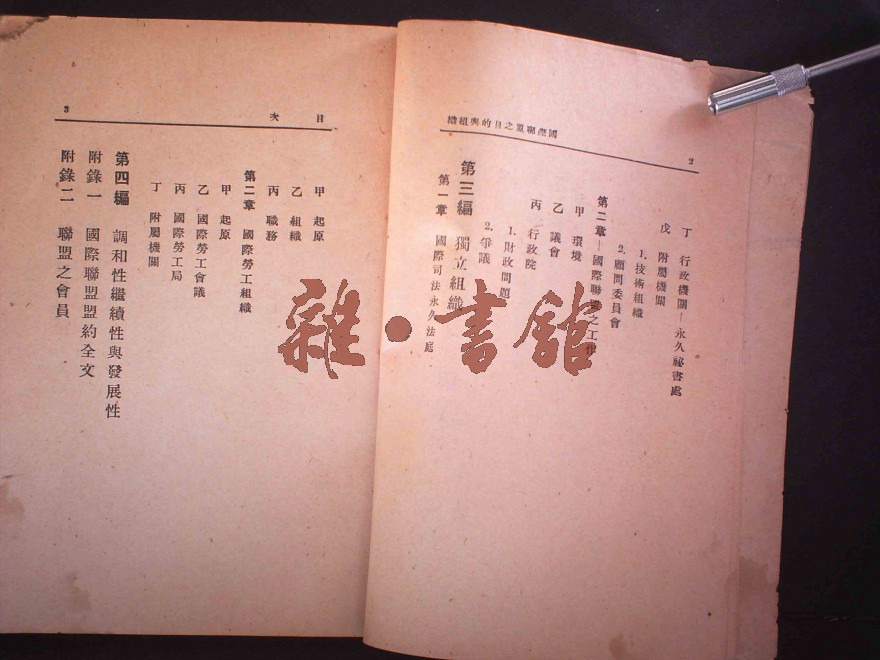 國際聯盟之目的與組織
2
丁 行政機關—永久祕書處
戊 附屬機關
1. 技術組織
2. 顧問委員會
第二章—國際聯盟之工作
甲 環境
乙 議會
丙 行政院
1. 財政問題
2. 爭議
第三編 獨立組織
第一章 國際司法永久法庭
目次
3
甲 起原
乙 組織
丙 職務
第二章 國際勞工組織
甲 起原
乙 國際勞工會議
丙 國際勞工局
丁 附屬機關
第四編 調和性繼續性與發展性
附錄一 國際聯盟盟約全文
附錄二 聯盟之會員
雜·書館